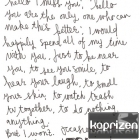 I miss you, "hello"
you are the only one who can
make this better. I would
happily spend all of my time
with you. Just to be near
you, to see you smile, to
hear your laugh, to smell
your skin, to watch trash
tv together, to do nothing
anything.
But I won't.
koprizen